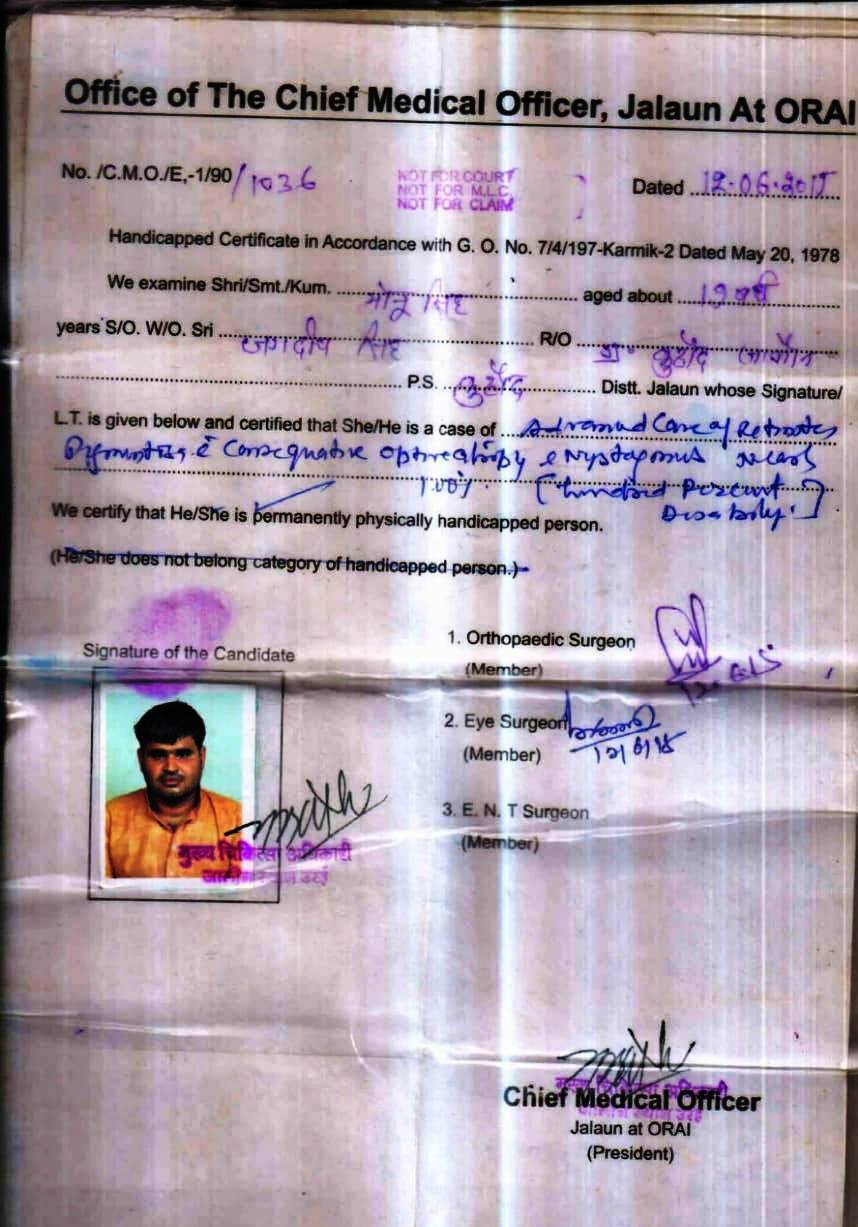 Office of The Chief Medical Officer, Jalaun At ORAI
No. /C.M.O./E,-1/90/1036
NOT FOR COURT
NOT FOR M.L.C.
NOT FOR CLAIM
Dated 12.06.2015
Handicapped Certificate in Accordance with G. O. No. 7/4/197-Karmik-2 Dated May 20, 1978
We examine Shri/Smt./Kum. सिंह aged about वर्ष
years S/O. W/O. Sri जगदीप सिंह R/O ग्रा० कुठौंद जालौन
P.S. कुठौंद Distt. Jalaun whose Signature/
L.T. is given below and certified that She/He is a case of Case of Retinitis
Pigmentosa c Consequative c Nystagmus
100% (Hundred Percent
We certify that He/She is permanently physically handicapped person.
Disability)
(He/She does not belong category of handicapped person.)
Signature of the Candidate
1. Orthopaedic Surgeon
(Member)
2. Eye Surgeon
(Member)
12/6/15
3. E. N. T Surgeon
(Member)
मुख्य चिकित्सा अधिकारी
जालौन स्थान उरई
मुख्य चिकित्सा अधिकारी
जालौन स्थान उरई
Chief Medical Officer
Jalaun at ORAI
(President)